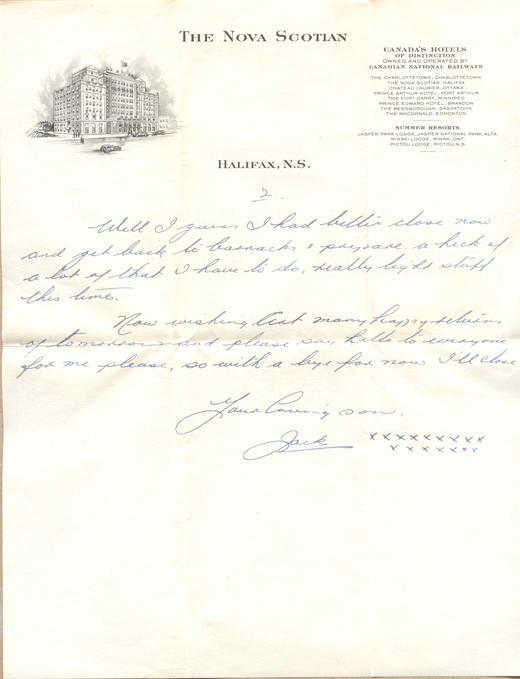 THE NOVA SCOTIAN
CANADA'S HOTELS
OF DISTINCTION
OWNED AND OPERATED BY
CANADIAN NATIONAL RAILWAYS
THE CHARLOTTETOWN, CHARLOTTETOWN
THE NOVA SCOTIAN, HALIFAX
CHÂTEAU LAURIER, OTTAWA
PRINCE ARTHUR HOTEL, PORT ARTHUR
THE FORT GARRY, WINNIPEG
PRINCE EDWARD HOTEL, BRANDON
THE BESSBOROUGH, SASKATOON
THE MACDONALD, EDMONTON
SUMMER RESORTS
JASPER PARK LODGE, JASPER NATIONAL PARK, ALTA.
MINAKI LODGE, MINAKI, ONT.
PICTOU LODGE, PICTOU, N.S.
HALIFAX, N.S.
2.
Well I guess I had better close now
and get back to barracks & prepare. a heck of
a lot of that I have to do, really light stuff
this time.
Now wishing Art many happy returns
of tomorrow and please say hello to everyone
for me please, so with a bye for now. I'll close
Your loving son.
Jack xxxxxxxxx
xxxxxxx